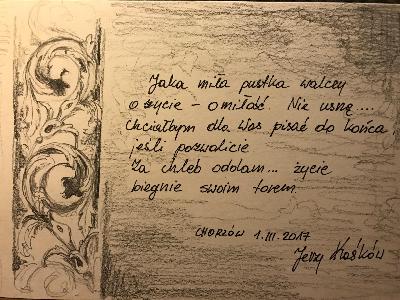 Jaka miła pustka walczy
o życie – o miłość. Nie usnę....
Chciałbym dla Was pisać do końca,
jeśli pozwolicie
Za chleb oddam... życie
biegnie swoim torem.
CHORZÓW 1.III.2017
Jerzy